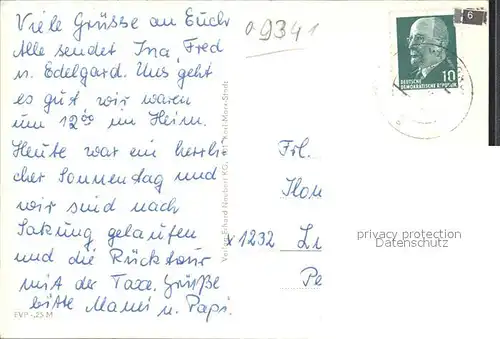 Viele Grüsse an Euch
Alle sendet Ina, Fred
u. Edelgard. Uns geht
es gut, wir waren
um 12⁰⁰ im Heim.
Heute war ein herrli-
cher Sonnentag und
wir sind nach
gelaufen
und die Rücktour
mit der Taxe. Grüße
bitte Mami u. Papi.
EVP -,25 M
Verlag Erhard Neubert KG, Karl-Marx-Stadt
09341
6
10
DEUTSCHE
DEMOKRATISCHE REPUBLIK
Frl.
Ilon
x 1232 Li
Pe
privacy protection
Datenschutz